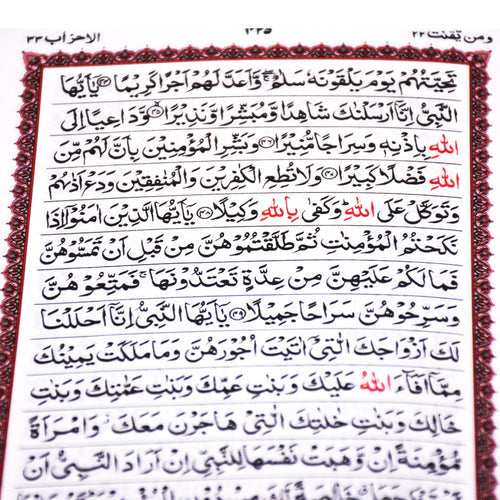 ومن يقنت ٢٢ الاحزاب ٣٣
تَحِيَّتُهُمْ يَوْمَ يَلْقَوْنَهٗ سَلٰمٌ ۚ وَّاَعَدَّ لَهُمْ اَجْرًا كَرِيْمًا ۝٤٤ يٰۤاَيُّهَا
النَّبِيُّ اِنَّاۤ اَرْسَلْنٰكَ شَاهِدًا وَّمُبَشِّرًا وَّنَذِيْرًا ۝٤٥ وَّدَاعِيًا اِلَى
اللّٰهِ بِاِذْنِهٖ وَسِرَاجًا مُّنِيْرًا ۝٤٦ وَبَشِّرِ الْمُؤْمِنِيْنَ بِاَنَّ لَهُمْ مِّنَ
اللّٰهِ فَضْلًا كَبِيْرًا ۝٤٧ وَلَا تُطِعِ الْكٰفِرِيْنَ وَالْمُنٰفِقِيْنَ وَدَعْ اَذٰىهُمْ
وَتَوَكَّلْ عَلَى اللّٰهِ ؕ وَكَفٰى بِاللّٰهِ وَكِيْلًا ۝٤٨ يٰۤاَيُّهَا الَّذِيْنَ اٰمَنُوْۤا اِذَا
نَكَحْتُمُ الْمُؤْمِنٰتِ ثُمَّ طَلَّقْتُمُوْهُنَّ مِنْ قَبْلِ اَنْ تَمَسُّوْهُنَّ
فَمَا لَكُمْ عَلَيْهِنَّ مِنْ عِدَّةٍ تَعْتَدُّوْنَهَا ۚ فَمَتِّعُوْهُنَّ
وَسَرِّحُوْهُنَّ سَرَاحًا جَمِيْلًا ۝٤٩ يٰۤاَيُّهَا النَّبِيُّ اِنَّاۤ اَحْلَلْنَا
لَكَ اَزْوَاجَكَ الّٰتِيْۤ اٰتَيْتَ اُجُوْرَهُنَّ وَمَا مَلَكَتْ يَمِيْنُكَ
مِمَّاۤ اَفَآءَ اللّٰهُ عَلَيْكَ وَبَنٰتِ عَمِّكَ وَبَنٰتِ عَمّٰتِكَ وَبَنٰتِ
خَالِكَ وَبَنٰتِ خٰلٰتِكَ الّٰتِيْ هَاجَرْنَ مَعَكَ ۫ وَامْرَاَةً
مُّؤْمِنَةً اِنْ وَّهَبَتْ نَفْسَهَا لِلنَّبِيِّ اِنْ اَرَادَ النَّبِيُّ اَنْ